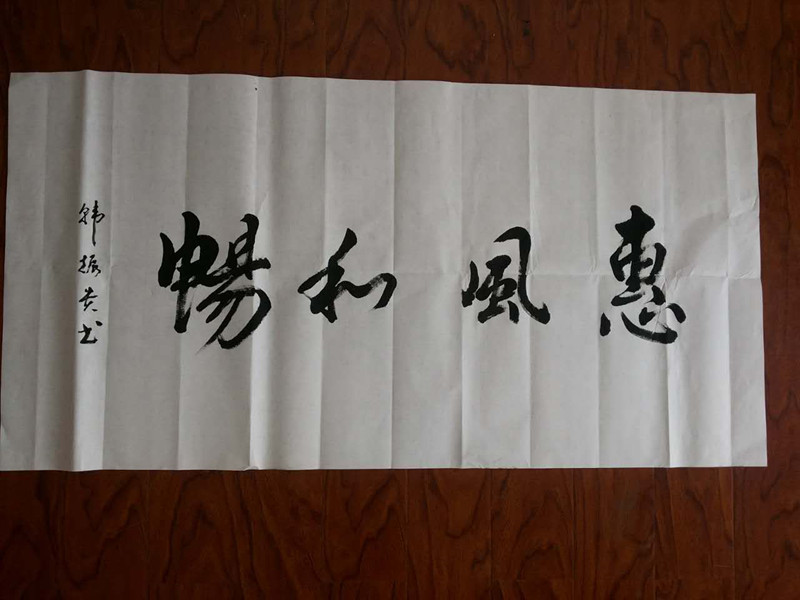 惠風和暢
韩振贵书